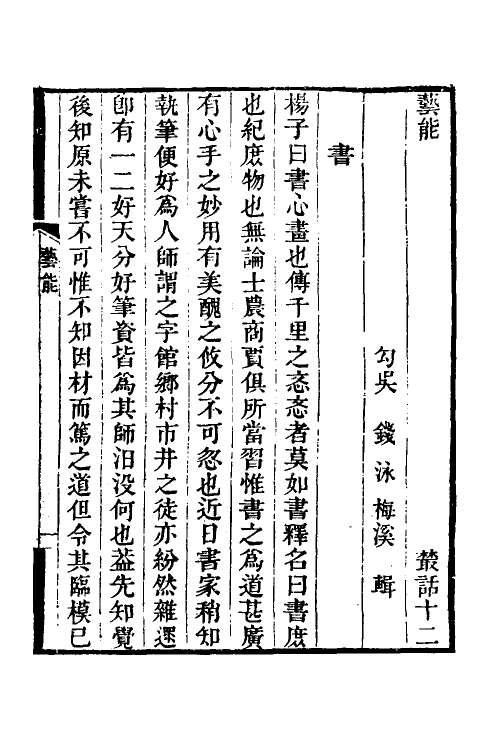 藝能　叢話十二
勾吳　錢泳梅溪　輯
書
楊子曰書心畫也傳千里之忞忞者莫如書釋名曰書庶
也紀庶物也無論士農商賈俱所當習惟書之爲道甚廣
有心手之妙用有美醜之攸分不可忽也近日書家稍知
執筆便好爲人師謂之字館鄉村市井之徒亦紛然雜遝
卽有一二好天分好筆資皆爲其師汨没何也葢先知覺
後知原未嘗不可惟不知因材而篤之道但令其臨模已
藝能
一